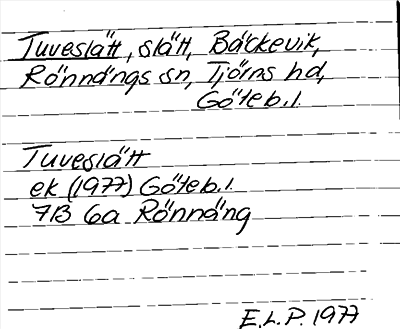 Tuveslätt, slätt, Bäckevik,
Rönnängs sn, Tjörns hd,
Göteb.l.
Tuveslätt
ek (1977) Göteb.l.
7B 6a Rönnäng
E.L.P. 1977